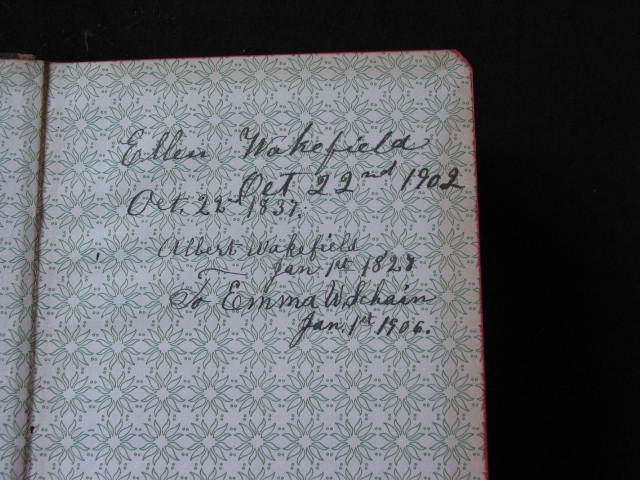 Ellen Wakefield
Oct 22nd 1902
Oct. 22nd 1837.
Albert Wakefield
Jan. 1st 1828
To Emma W Schain
Jan. 1st 1906.